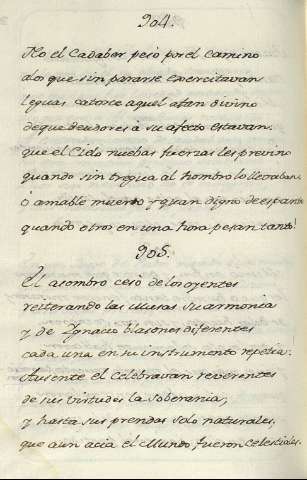 904.
No el Cadaber pesó por el camino
alos que sin pararse exercitavan
leguas catorce aquel afan divino
deque deudores á su afecto estavan.
que el Cielo nuebas fuerzas les previno
quando sin tregua al hombro lo llevaban.
ó amable muerto y quan digno de espanto
quando otros en una hora pesan tanto!
905.
El asombro cesó de los oyentes
reiterando las Musas su armonia
y de Ignacio blasones diferentes
cada una en su instrumento repetia.
Ausente el Celebravan reverentes
de sus virtudes la Soberania,
y hasta sus prendas solo naturales,
que aun acia el Mundo, fueron Celestiales.